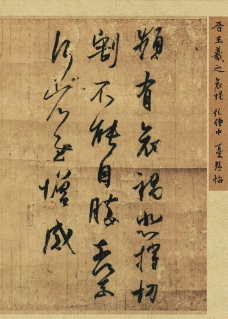 晉王羲之 哀禍 孔侍中 憂懸帖
頻有哀禍悲摧切
割不能自勝奈何
省慰增感